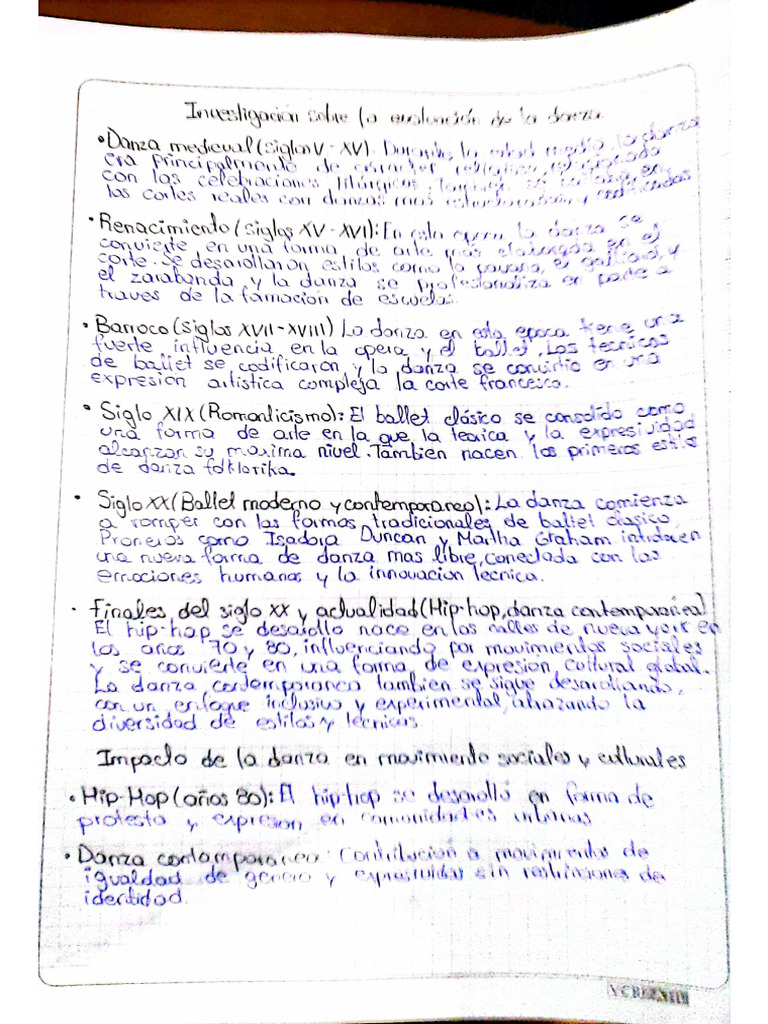 Investigación sobre la evaluación de la danza
• Danza medieval (Siglos V - XV). Durante la edad media, la danza
era principalmente de caracter religioso, relacionada
con las celebraciones litúrgicas, en
las cortes reales con danzas mas estructuradas y codificadas
• Renacimiento (Siglos XV - XVI): En esta epoca la danza se
convierte en una forma de arte mas elaborada en el
corte. Se desarollaron estilos como la pavana, el gallard, y
el zarabanda y la danza se profesionaliza en parte a
traves de la famación de escuelas.
• Barroco (Siglos XVII - XVIII) La danza en esta epoca tiene una
fuerte influencia en la opera y el ballet. Las tecnicas
de ballet se codificaron, y la danza se convirtio en una
expresión artistica compleja la corte francesca.
• Siglo XIX (Romanticismo): El ballet clásico se consolido como
una forma de arte en la que la teorica y la expresividad
alcanzan su maxima nivel. Tambien nacen los primeros estilos
de danza folklorika.
• Siglo XX (Ballet moderno y contemporaneo): La danza comienza
a romper con las formas tradicionales de ballet clasico,
Proneros como Isadora Duncan y Martha Graham introducen
una nueva forma de danza mas libre, conectada con las
emociones humanas y la innovacion tecnica.
• Finales del siglo XX y actualidad (Hip-hop, danza contemporanea)
El hip-hop se desarollo nace en las calles de nueva york en
los años '70 y 80, influenciando por movimientos sociales
y se convierte en una forma de expresion cultural global.
La danza contemporaneo tambien se sigue desarollando,
con un enfoque inclusivo y experimental, abrazando la
diversidad de estilos y tecnicas
Impacto de la danza en movimiento sociales y culturales
• Hip-Hop (años 80): El hip-hop se desarolló en forma de
protesta y expresion en comunidades urbanas
• Danza contemporaneo: Contribución a movimientos de
igualdad de genero y sin restricciones de
identidad.